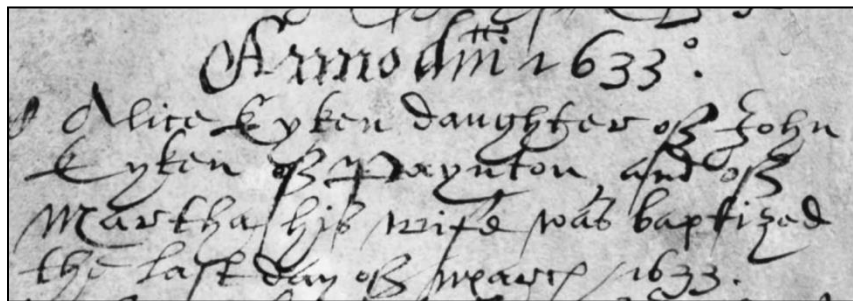 Anno dm̄i 1633º.
Alice Kyken daughter of John
Kyken of Paynton and of
Martha his wife was baptized
the last day of march 1633.